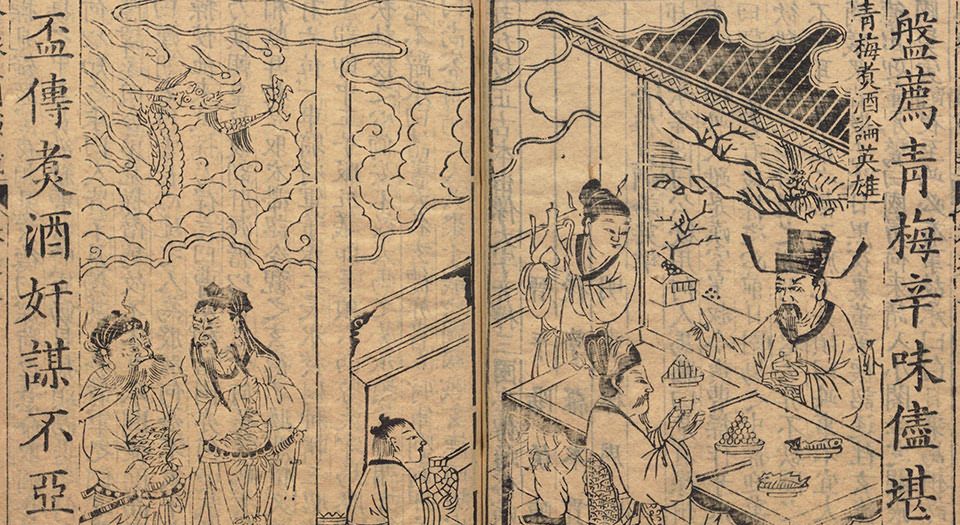 盤薦青梅辛味儘堪
青梅煑酒論英雄
盃傳煑酒奸謀不亞